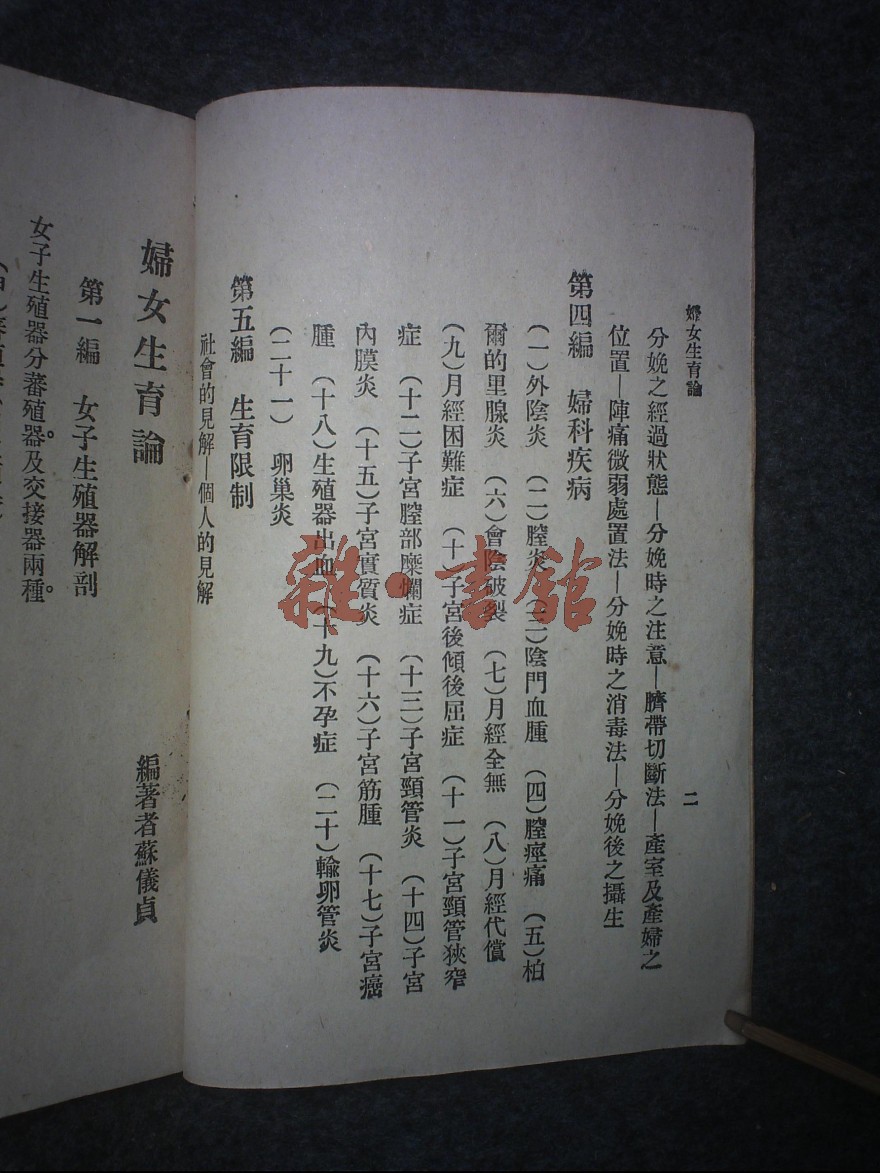 婦女生育論
二
分娩之經過狀態—分娩時之注意—臍帶切斷法—產室及產婦之
位置—陣痛微弱處置法—分娩時之消毒法—分娩後之攝生
第四編 婦科疾病
(一)外陰炎 (二)膣炎 (三)陰門血腫 (四)膣痙痛 (五)柏
爾的里腺炎 (六)會陰破裂 (七)月經全無 (八)月經代償
(九)月經困難症 (十)子宮後傾後屈症 (十一)子宮頸管狹窄
症 (十二)子宮膣部糜爛症 (十三)子宮頸管炎 (十四)子宮
內膜炎 (十五)子宮實質炎 (十六)子宮筋腫 (十七)子宮癌
腫 (十八)生殖器出血 (十九)不孕症 (二十)輸卵管炎
(二十一) 卵巢炎
第五編 生育限制
社會的見解—個人的見解
婦女生育論
編著者蘇儀貞
第一編 女子生殖器解剖
女子生殖器分蕃殖器及交接器兩種。
雜·書館